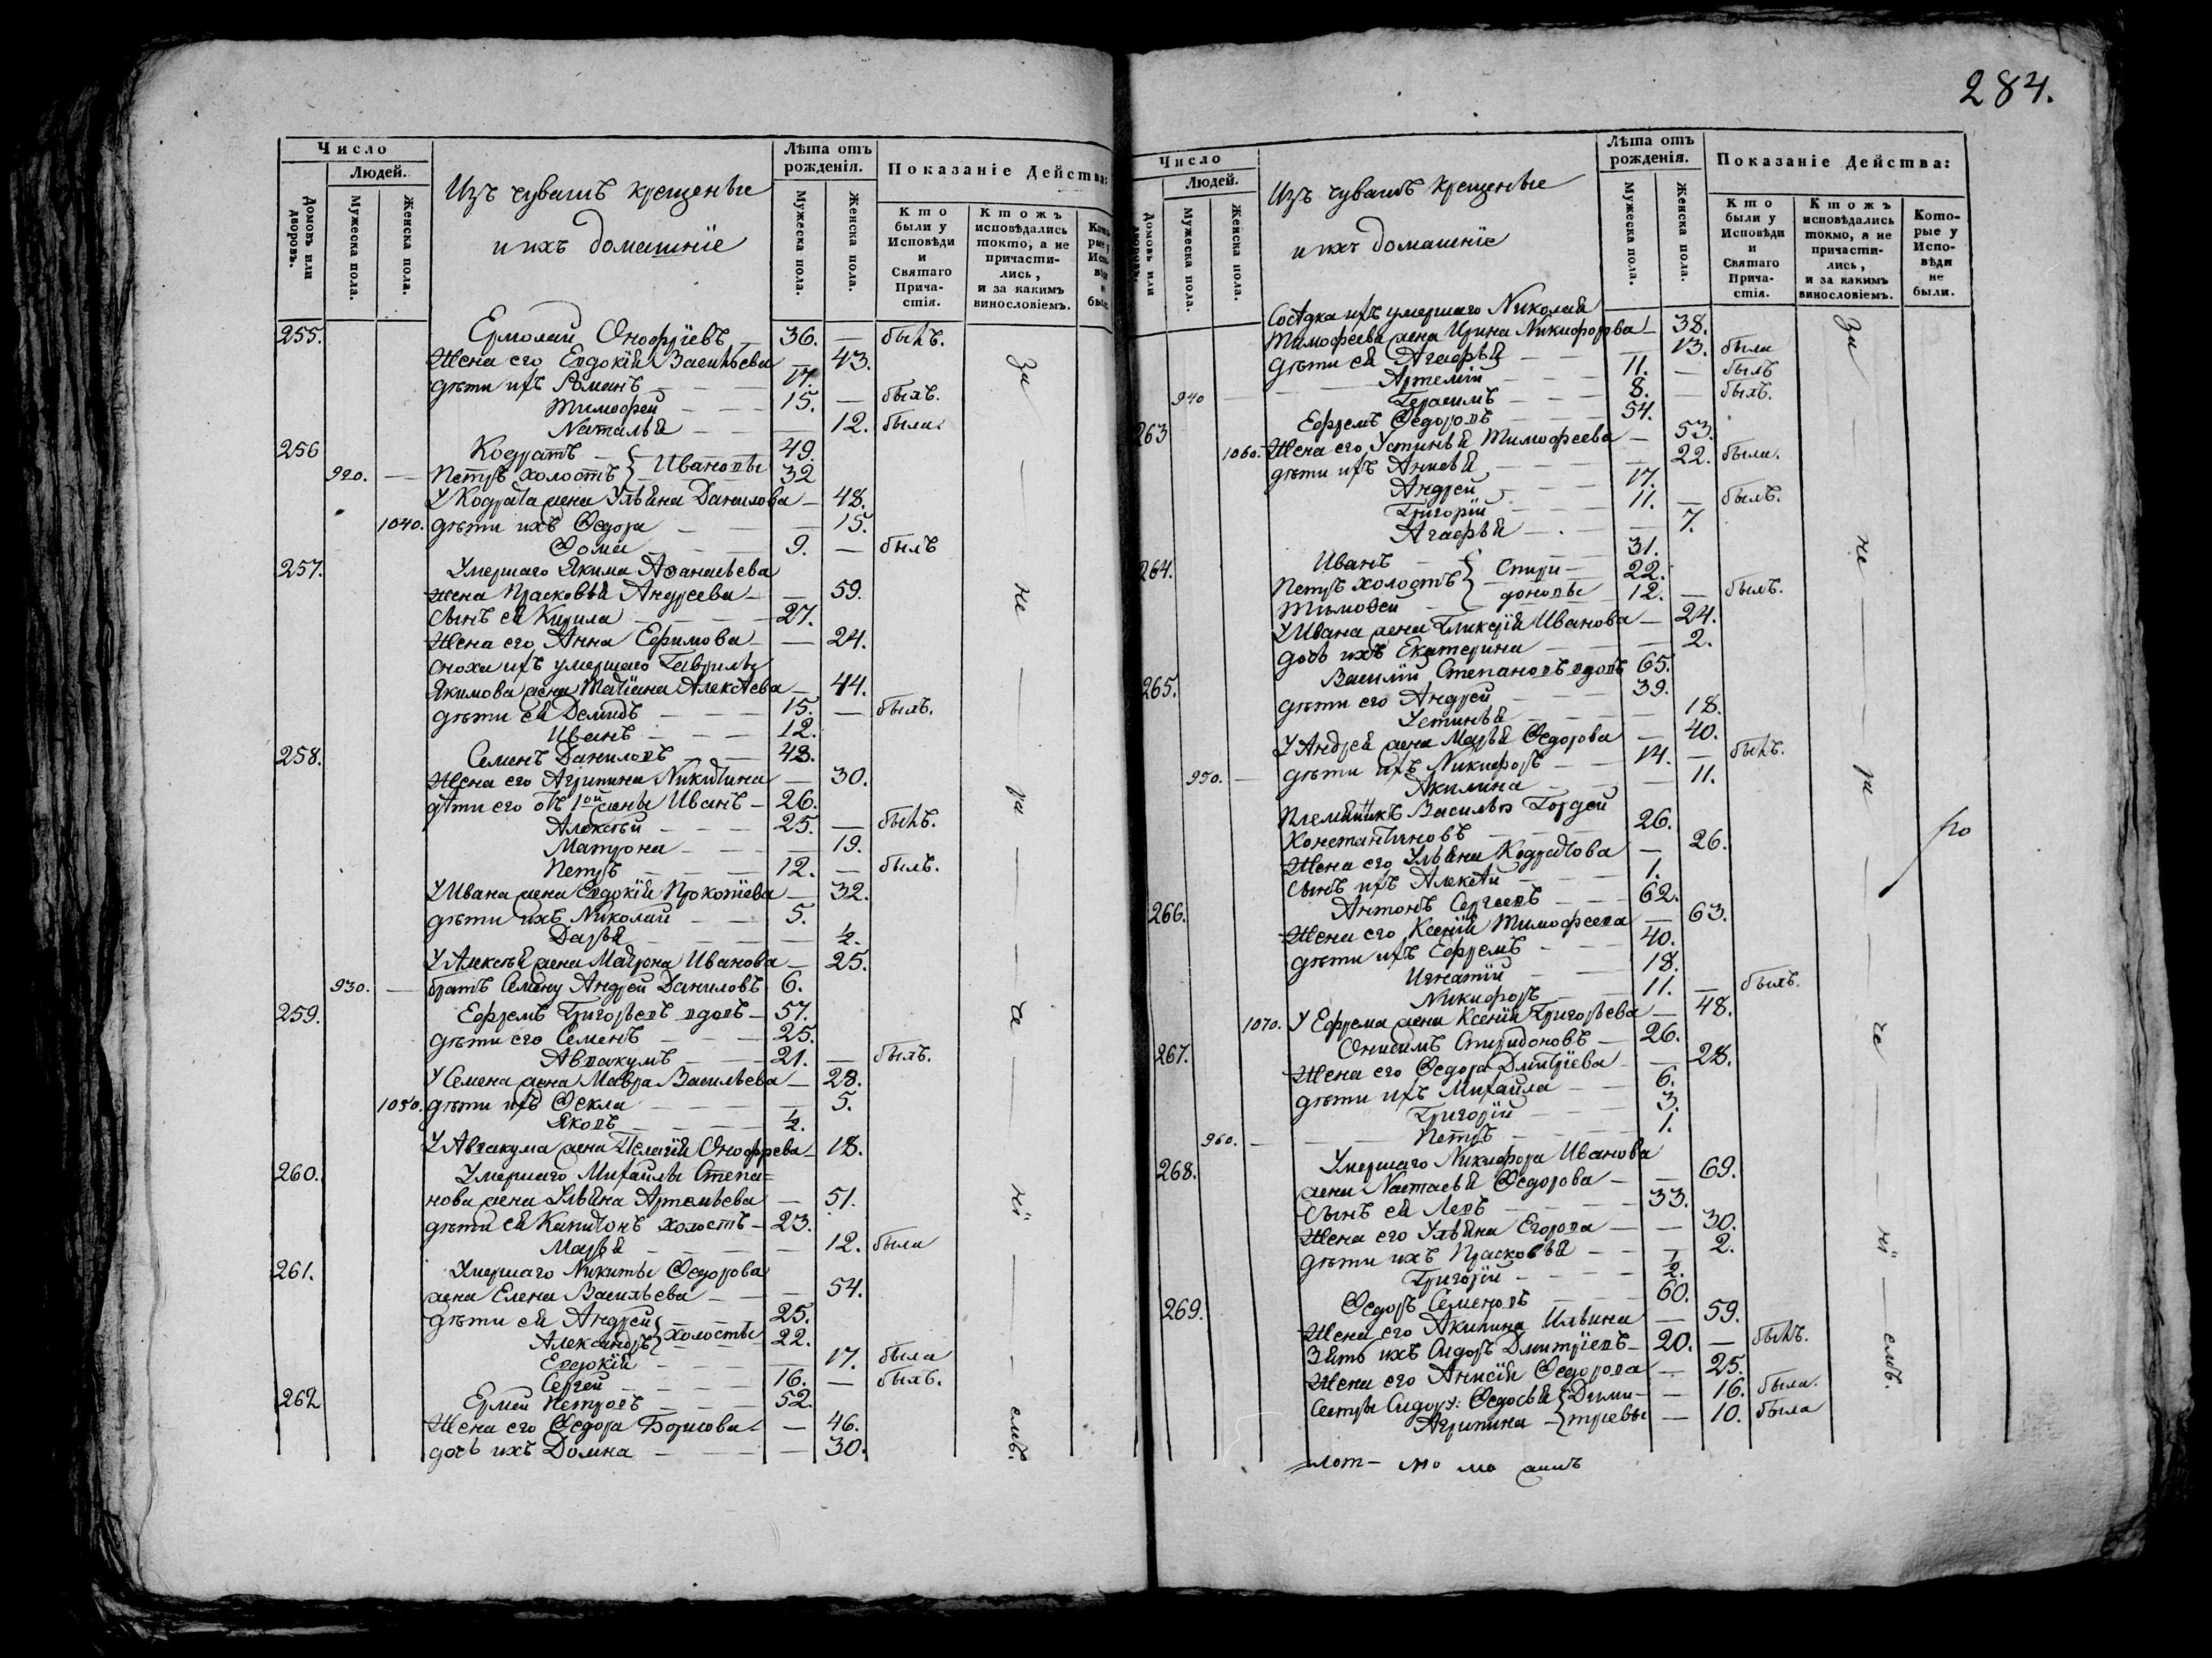 284.
Число
Людей.
Домовъ или дворовъ.
Мужеска пола.
Женска пола.
Изъ чувашъ крещеные
и ихъ домашніе
Лѣта отъ рожденія.
Мужеска пола.
Женска пола.
Показаніе Действа:
Кто были у Исповѣди и Святаго Прича-стія.
Ктожъ исповѣдались токмо, а не причасти-лись, и за какимъ винословіемъ.
255. Ермолай Онофріевъ — 36. — былъ.
Жена его Евдокія Васильева — 43.
дѣти ихъ Романъ — 17.
Тимофей — 15. — былъ.
Наталья — 12. была
256 Кодратъ — 49.
920. — Петръ холостъ } Ивановы 32
У Кодрата жена Ульяна Данилова — 48.
1040. дѣти ихъ Ѳедора — 15.
Ѳома — 9. — былъ
257. Умершаго Якима Аѳанасьева
жена Прасковья Андреева — 59.
Сынъ ея Кирила — 27.
Жена его Анна Ефимова — 24.
Сноха ихъ умершаго Гаврилы
Якимова жена Татіана Алексѣева — 44.
дѣти ея Демидъ — 15. — былъ.
Иванъ — 12.
258. Семенъ Даниловъ — 48.
Жена его Агрипина Никитина — 30.
дѣти его отъ 1ой жены Иванъ — 26.
Алексѣй — 25. — былъ.
Матрона — 19.
Петръ — 12. — былъ.
У Ивана жена Евдокія Прокопіева — 32.
дѣти ихъ Николай — 5.
Дарья — ½.
У Алексѣя жена Матрона Иванова — 25.
930. — братъ Семену Андрей Даниловъ 6.
259. Ефремъ Григорьевъ вдовъ — 57.
дѣти его Семенъ — 25.
Аввакумъ — 21. — былъ.
У Семена жена Мавра Васильева — 28.
1050. дѣти ихъ Ѳекла — 5.
Яковъ — ½.
У Аввакума жена Пелагія Онофрева — 18.
260. Умершаго Михайлы Степа=
нова жена Ульяна Артемьева — 51.
дѣти ея Капитонъ холостъ — 23.
Марья — 12. была
261. Умершаго Никиты Ѳедорова
жена Елена Васильева — 54.
дѣти ея Андрей — 25.
Александръ } холосты 22.
Евдокія — 17. была
Сергей — 16. — былъ.
262 Ермей Петровъ — 52.
Жена его Ѳедора Борисова — 46.
дочь ихъ Домна — 30.
За — не — ра — че — ні — емъ.
Число
Людей.
Домовъ или дворовъ.
Мужеска пола.
Женска пола.
Изъ чувашъ крещеные
и ихъ домашніе
Лѣта отъ рожденія.
Мужеска пола.
Женска пола.
Показаніе Действа:
Кто были у Исповѣди и Святаго Прича-стія.
Ктожъ исповѣдались токмо, а не причасти-лись, и за какимъ винословіемъ.
Кото-рые у Испо-вѣди не были.
Сосѣдка ихъ умершаго Николая
Тимофеева жена Ирина Никифорова — 38.
дѣти ея Агафья — 13. была
Артемій — 11. — былъ
940 — Герасимъ — 8. — былъ.
263 Ефремъ Ѳедоровъ — 54.
1060. Жена его Устинья Тимофеева — 53.
дѣти ихъ Анисья — 22. была.
Андрей — 17.
Григорій — 11. — былъ.
Агафья — 7.
264. Иванъ — 31.
Петръ холостъ } Спири- 22.
Тимоѳей — доновы 12. — былъ.
У Ивана жена Гликерія Иванова — 24.
дочь ихъ Екатерина — 2.
265. Василій Степановъ вдовъ 65.
дѣти его Андрей — 39.
Устинья — 18.
У Андрея жена Марья Ѳедорова — 40.
950. — дѣти ихъ Никифоръ — 14. — былъ.
Акилина — 11.
Племянникъ Василью Гордей
Константиновъ — 26.
Жена его Ульяна Кодратова — 26.
Сынъ ихъ Алексѣй — 1.
266. Антонъ Сергеевъ — 62.
Жена его Ксенія Тимофеева — 63.
дѣти ихъ Ефремъ — 40.
Игнатій — 18.
Никифоръ — 11. — былъ.
1070. У Ефрема жена Ксенія Григорьева — 48.
267. Онисимъ Спиридоновъ — 26.
Жена его Ѳедора Дмитріева — 28.
дѣти ихъ Михайла — 6.
Григорій — 3.
960. — Петръ — 1.
268. Умершаго Никифора Иванова
жена Настасья Ѳедорова — 69.
Сынъ ея Левъ — 33.
Жена его Ульяна Егорова — 30.
дѣти ихъ Прасковья — 2.
Григорій — ½.
269. Ѳедоръ Семеновъ — 60.
Жена его Акилина Ильина — 59.
Зять ихъ Сидоръ Дмитріевъ — 20. — былъ.
Жена его Анисія Ѳедорова — 25.
Сестры Сидору: Ѳедосья } Дими- — 16. была.
Агрипина — тріевы — 10. была
За — не — ра — че — ні — емъ.